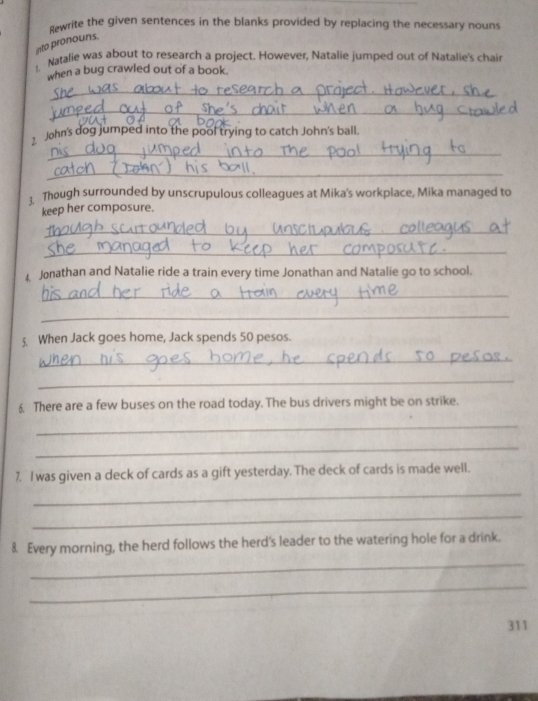 Rewrite the given sentences in the blanks provided by replacing the necessary nouns
into pronouns.
1. Natalie was about to research a project. However, Natalie jumped out of Natalie's chair
when a bug crawled out of a book.
She was about to research a project. However, she
jumped out of she's chair when a bug crawled
out of a book.
2. John's dog jumped into the pool trying to catch John's ball.
his dog jumped into the pool trying to
catch (John') his ball.
3. Though surrounded by unscrupulous colleagues at Mika's workplace, Mika managed to
keep her composure.
though surrounded by unscrupulous colleagus at
she managed to keep her composure.
4. Jonathan and Natalie ride a train every time Jonathan and Natalie go to school.
his and her ride a train every time
5. When Jack goes home, Jack spends 50 pesos.
when his goes home, he spends 50 pesos.
6. There are a few buses on the road today. The bus drivers might be on strike.
7. I was given a deck of cards as a gift yesterday. The deck of cards is made well.
8. Every morning, the herd follows the herd's leader to the watering hole for a drink.
311